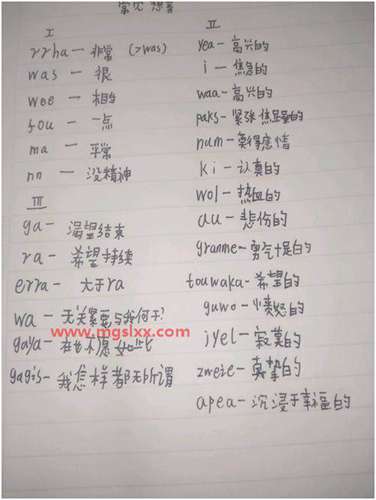 常见想音
I
rrha — 非常 (>was)
was — 很
wee — 相当
fou — 一点
ma — 平常
nn — 没精神
III
ga — 渴望结束
ra — 希望持续
erra — 大于ra
wa — 无关紧要与我何干?
www.mgslxx.com
gaya — 在也不愿如此
gagis — 我怎样都无所谓
II
yea — 高兴的
i — 焦急的
waa — 高兴的
paks — 紧张焦虑的
num — 莫得感情
ki — 认真的
wol — 热血的
au — 悲伤的
granme — 勇气十足的
touwaka — 希望的
guwo — 愤怒的
jyel — 寂寞的
zweie — 真挚的
apea — 沉浸于幸福的